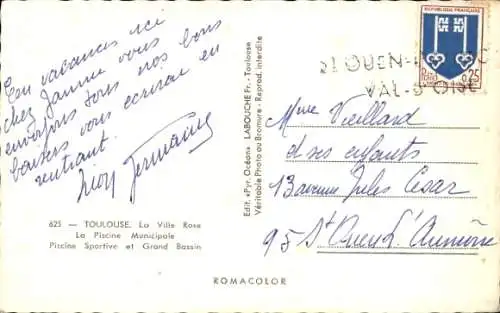 En vacances ici
chez Jeannine vous
envoyons tous nos bons
baisers vous écrirai en
rentrant.
Germaine
625 — TOULOUSE. La Ville Rose
La Piscine Municipale
Piscine Sportive et Grand Bassin
Edit. «Pyr. Océan» LABOUCHE Fr. - Toulouse
Véritable Photo au Bromure - Reprod. interdite
REPUBLIQUE FRANÇAISE
0,25
ST OUEN-L'
VAL-D'OISE
Mme Vieillard
et ses enfants
13 avenue Jules César
95 St Ouen l'Aumône
ROMACOLOR